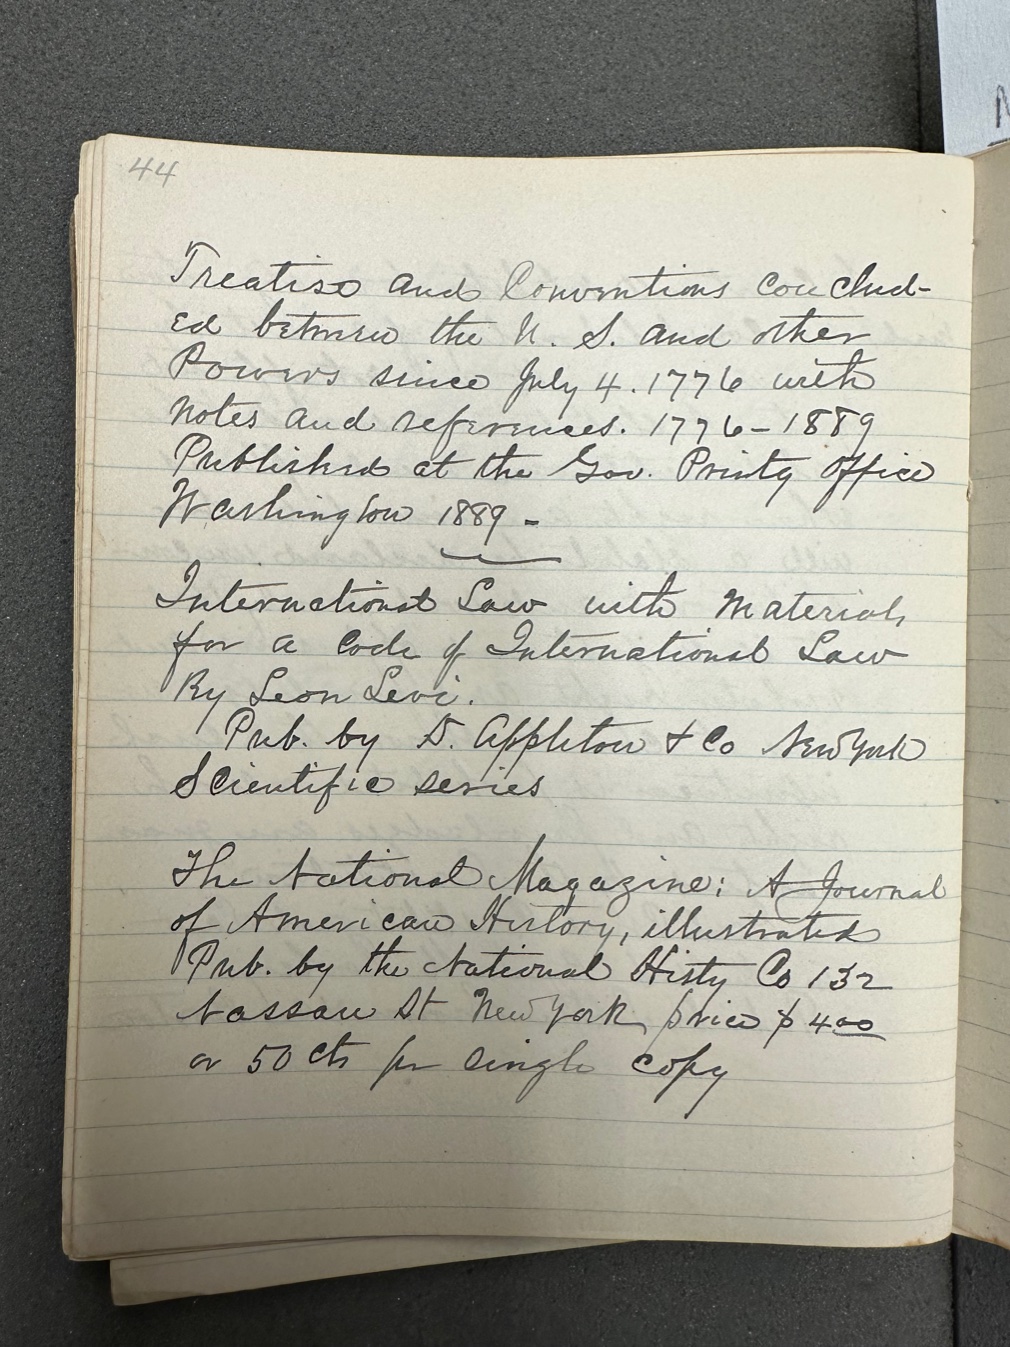 44
Treatise and Conventions conclud-
ed between the U. S. and other
Powers since July 4. 1776 with
notes and references. 1776-1889
Published at the Gov. Printg office
Washington 1889 -
International Law with Materials
for a Code of International Law
By Leon Levi.
Pub. by D. Appleton & Co New York
Scientific series
The National Magazine; A Journal
of American History, illustrated
Pub. by the National Histy Co 132
Nassau St New York, price $ 4.00
or 50 cts per single copy